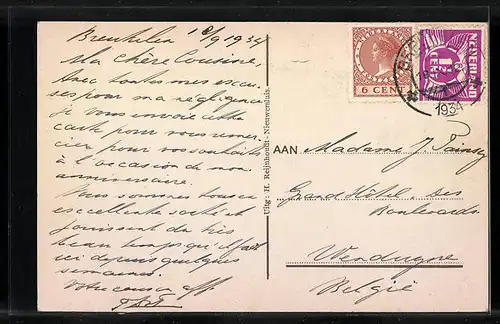 Breukelen 1 8/9 1934
Ma chère Cousine,
Avec toutes mes excu-
ses pour ma négligence
je vous envoie cette
carte pour vous remer-
cier pour vos souhaits
à l'occasion de mon
anniversaire.
Nous sommes tous en
excellente santé et
jouissent du très
beau temps qu'il fait
ici depuis quelques
semaines.
Votre cousin aff
6 CENT
NEDERLAND
1½
CENT
1934
Uitg: H. Reijnhoudt - Nieuwersluis.
AAN Madame J.
Grand Hôtel des
Boulevards
Wenduyne
België